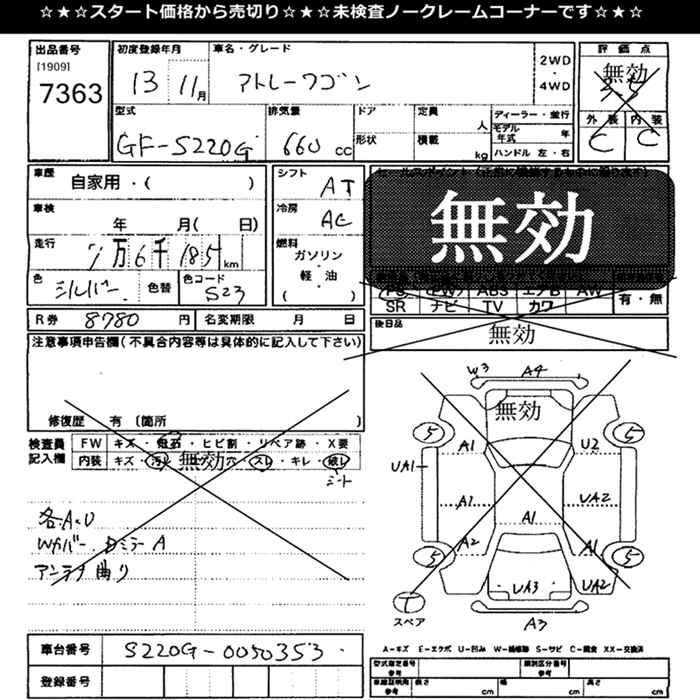 ☆★☆スタート価格から売切り☆★☆未検査ノークレームコーナーです☆★☆
出品番号
[1909]
7363
初度登録年月
13 11月
車名・グレード
アトレーワゴン
2WD
・
4WD
評価点
無効
外装 内装
C C
型式
GF-S220G
排気量
660 cc
ドア
形状
定員
人
積載
kg
ディーラー・並行
モデル年式 年
ハンドル 左・右
車歴
自家用・( )
車検
年 月( 日)
走行
7万6千185km
色
シルバー
色替
色コード
S23
シフト
AT
冷房
AC
燃料
ガソリン
・
軽・油
( )
無効
PS PW ABS エアB AW
SR ナビ TV カワ
有・無
R券 8780 円 名変期限 月 日
後日品
無効
注意事項申告欄(不具合内容等は具体的に記入して下さい)
修復歴 有 (箇所 )
検査員
記入欄
FW キズ・飛石・ヒビ割・リペア跡・X要
内装 キズ・汚れ 無効 穴・スレ・キレ・破レ
シート
各A.U
Wカバー.Dミラー A
アンテナ曲り
W3 A4
無効
5 5
A1 U2
UA1
A1 UA2
A1
A2 A1
5 5
UA3 UA2
T
スペア
A3
A-キズ E-エクボ U-凹み W-補修跡 S-サビ C-腐食 XX-交換済
車台番号 S220G-0050353
登録番号
型式指定番号
参考
類別区分番号
参考
車検証明用
参考
長さ cm 幅 cm 高さ cm